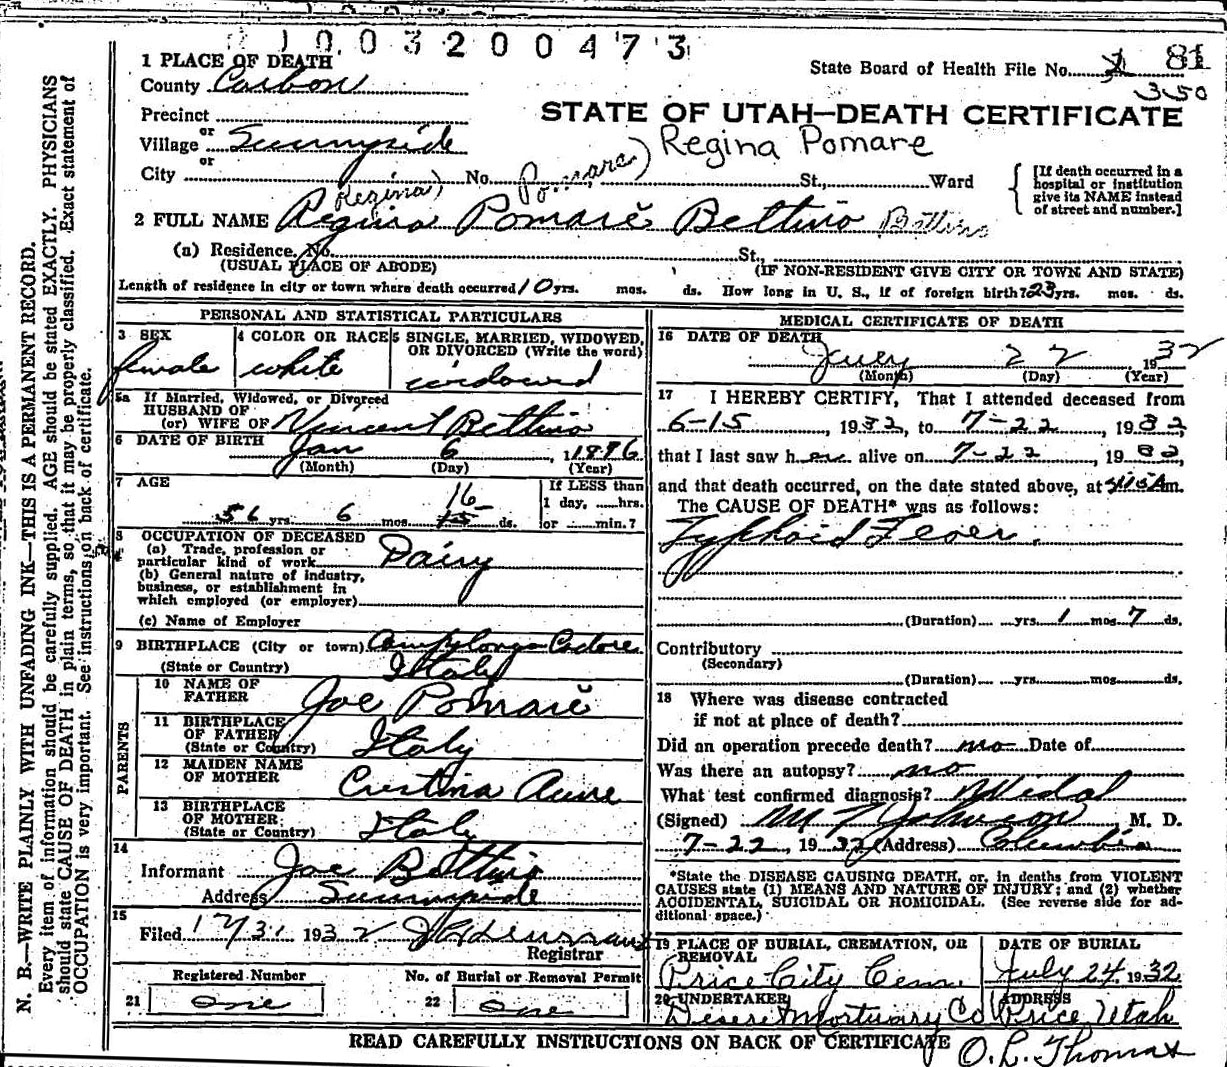 1003200473
1 PLACE OF DEATH
State Board of Health File No. 81
350
County Carbon
STATE OF UTAH—DEATH CERTIFICATE
Precinct
or
Village Sunnyside
Regina Pomare
or
City No. St., Ward
[If death occurred in a hospital or institution give its NAME instead of street and number.]
Regina) Pomare)
2 FULL NAME Regina Pomarĕ Bettino Bettino
(a) Residence. No. St.,
(USUAL PLACE OF ABODE) (IF NON-RESIDENT GIVE CITY OR TOWN AND STATE)
Length of residence in city or town where death occurred 10 yrs. mos. ds. How long in U. S., if of foreign birth? 23 yrs. mos. ds.
PERSONAL AND STATISTICAL PARTICULARS
3 SEX 4 COLOR OR RACE 5 SINGLE, MARRIED, WIDOWED, OR DIVORCED (Write the word)
female white widowed
5a If Married, Widowed, or Divorced
HUSBAND OF
(or) WIFE OF Vincent Bettino
6 DATE OF BIRTH Jan 6, 1876
(Month) (Day) (Year)
7 AGE If LESS than
16 1 day, hrs.
56 yrs. 6 mos. 15 ds. or min.?
8 OCCUPATION OF DECEASED
(a) Trade, profession or
particular kind of work Dairy
(b) General nature of industry,
business, or establishment in
which employed (or employer)
(c) Name of Employer
9 BIRTHPLACE (City or town) Campolongo Cadore
(State or Country) Italy
PARENTS
10 NAME OF FATHER Joe Pomarĕ
11 BIRTHPLACE OF FATHER (State or Country) Italy
12 MAIDEN NAME OF MOTHER Crestina
13 BIRTHPLACE OF MOTHER (State or Country) Italy
14
Informant Joe Bettino
Address Sunnyside
15
Filed 1932
Registrar
Registered Number No. of Burial or Removal Permit
21 one 22 one
MEDICAL CERTIFICATE OF DEATH
16 DATE OF DEATH
July 22 1932
(Month) (Day) (Year)
17 I HEREBY CERTIFY, That I attended deceased from
6-15, 1932, to 7-22, 1932,
that I last saw her alive on 7-22, 1932,
and that death occurred, on the date stated above, at m.
The CAUSE OF DEATH* was as follows:
Typhoid Fever.
(Duration) yrs. 1 mos. 7 ds.
Contributory
(Secondary)
(Duration) yrs. mos. ds.
18 Where was disease contracted
if not at place of death?
Did an operation precede death? no Date of
Was there an autopsy? no
What test confirmed diagnosis? Widal
(Signed) Johnson, M. D.
7-22, 1932 (Address) Columbia
*State the DISEASE CAUSING DEATH, or, in deaths from VIOLENT
CAUSES state (1) MEANS AND NATURE OF INJURY; and (2) whether
ACCIDENTAL, SUICIDAL OR HOMICIDAL. (See reverse side for ad-
ditional space.)
19 PLACE OF BURIAL, CREMATION, OR REMOVAL DATE OF BURIAL
Price City Cem. July 24, 1932
20 UNDERTAKER ADDRESS
Deseret Mortuary Co Price Utah
READ CAREFULLY INSTRUCTIONS ON BACK OF CERTIFICATE
O. L. Thomas
N. B.—WRITE PLAINLY WITH UNFADING INK—THIS IS A PERMANENT RECORD.
Every item of information should be carefully supplied. AGE should be stated EXACTLY. PHYSICIANS
should state CAUSE OF DEATH in plain terms, so that it may be properly classified. Exact statement of
OCCUPATION is very important. See instructions on back of certificate.